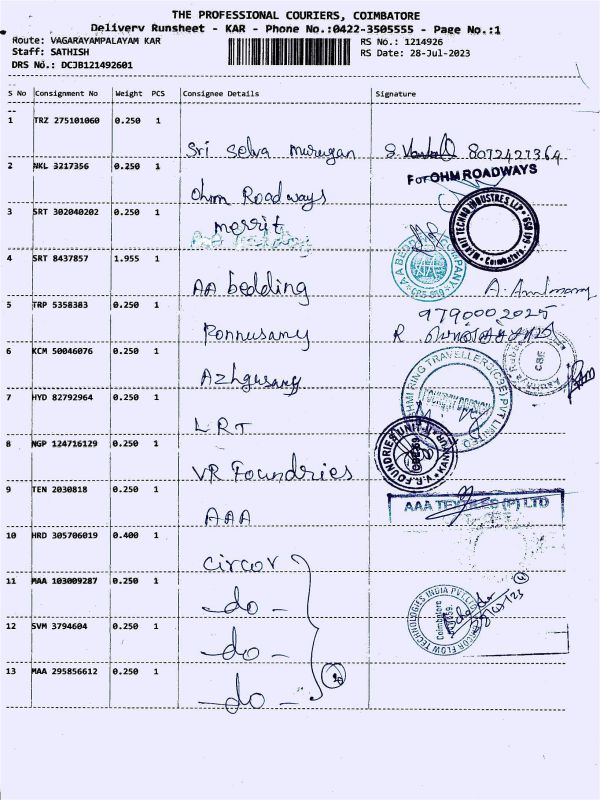 THE PROFESSIONAL COURIERS, COIMBATORE
Delivery Runsheet - KAR - Phone No.:0422-3505555 - Page No.:1
Route: VAGARAYAMPALAYAM KAR RS No.: 1214926
Staff: SATHISH RS Date: 28-Jul-2023
DRS No.: DCJB121492601
S No Consignment No Weight PCS Consignee Details Signature
1 TRZ 275101060 0.250 1
Sri Selva Murugan 8072427364
2 NKL 3217356 0.250 1
Ohm Roadways For OHM ROADWAYS
3 SRT 302040202 0.250 1
merrit
4 SRT 8437857 1.955 1
AA bedding
AA BEDDING COMPANY
9790002025
5 TRP 5358383 0.250 1
Ponnusamy R
6 KCM 50046076 0.250 1
Azhgusamy
7 HYD 82792964 0.250 1
LRT
8 NGP 124716129 0.250 1
VR Foundries
V.R.FOUNDRIES UNIT-II
9 TEN 2030818 0.250 1
AAA
AAA TEXTILES (P) LTD
10 HRD 305706019 0.400 1
Circor
11 MAA 103009287 0.250 1
- do -
12 SVM 3794604 0.250 1
- do -
13 MAA 295856612 0.250 1
- do -